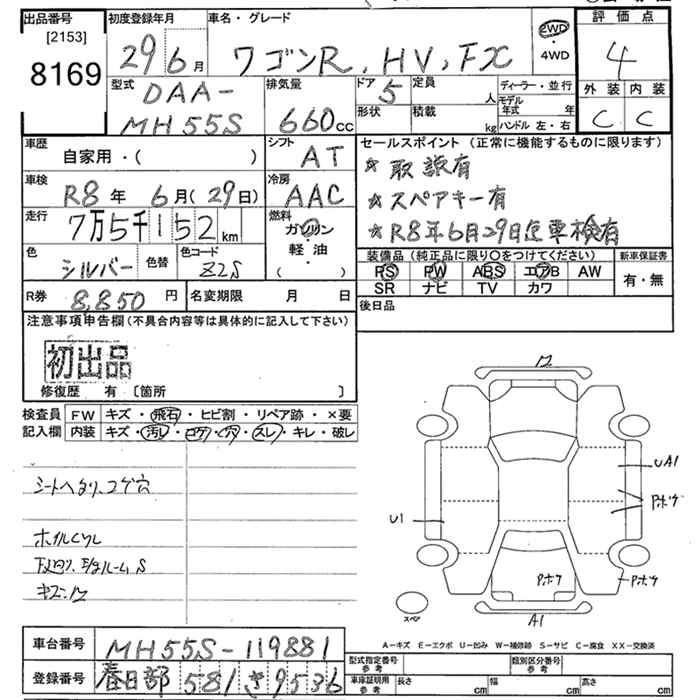 出品番号 初度登録年月 車名・グレード 評価点
[2153] 29年6月 ワゴンR、HV、FX 2WD・4WD 4
8169
型式 DAA-MH55S 排気量 660cc ドア 5 定員 人 ディーラー・並行 外装 内装
形状 積載 kg モデル年式 年 C C
ハンドル 左・右
車歴 自家用・( ) シフト AT セールスポイント (正常に機能するものに限ります)
☆取説有
車検 R8年 6月(29日) 冷房 AAC ☆スペアキー有
走行 7万5千152km 燃料 ガソリン 軽・油 ( ) ☆R8年6月29日迄車検有
色 シルバー 色替 色コード Z2S 装備品 (純正品に限り○をつけてください) 新車保証書
PS PW ABS エアB AW 有・無
SR ナビ TV カワ
R券 8,850円 名変期限 月 日 後日品
注意事項申告欄(不具合内容等は具体的に記入して下さい)
初出品
修復歴 有〔箇所 〕
検査員 FW キズ・飛石・ヒビ割・リペア跡・×要
記入欄 内装 キズ・汚レ・コゲ・穴・スレ・キレ・破レ
シートヘタリ、コゲ穴
下廻り
キズ
12
UA1
Pホゲ
U1
Pホゲ
Pホゲ
スペア
A1
A-キズ E-エクボ U-凹み W-補修跡 S-サビ C-腐食 XX-交換済
車台番号 MH55S-119881 型式指定番号 参考 類別区分番号 参考
登録番号 春日部 581 き 9536 車庫証明用 参考 長さ cm 幅 cm 高さ cm